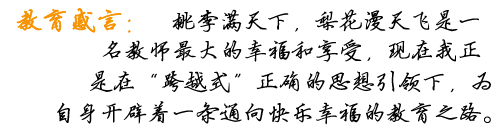 教育感言： 桃李满天下，梨花漫天飞是一
名教师最大的幸福和享受，现在我正
是在“跨越式”正确的思想引领下，为
自身开辟着一条通向快乐幸福的教育之路。